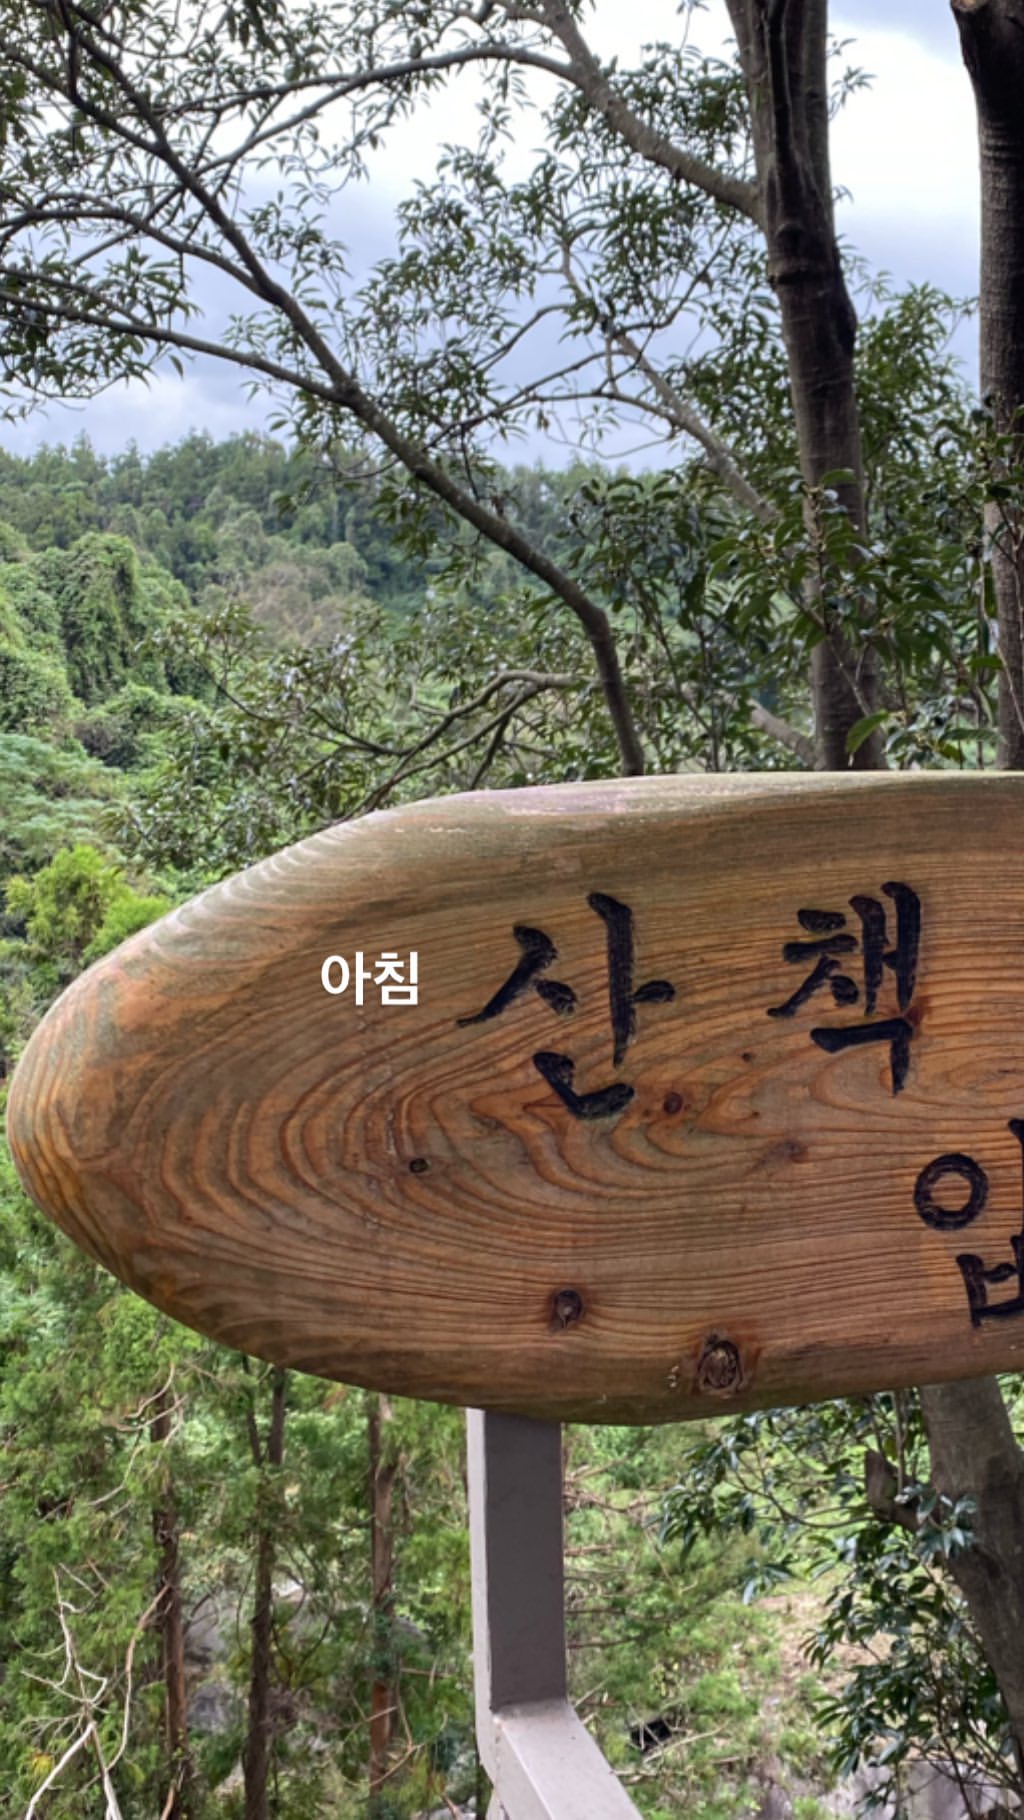 아침 산책